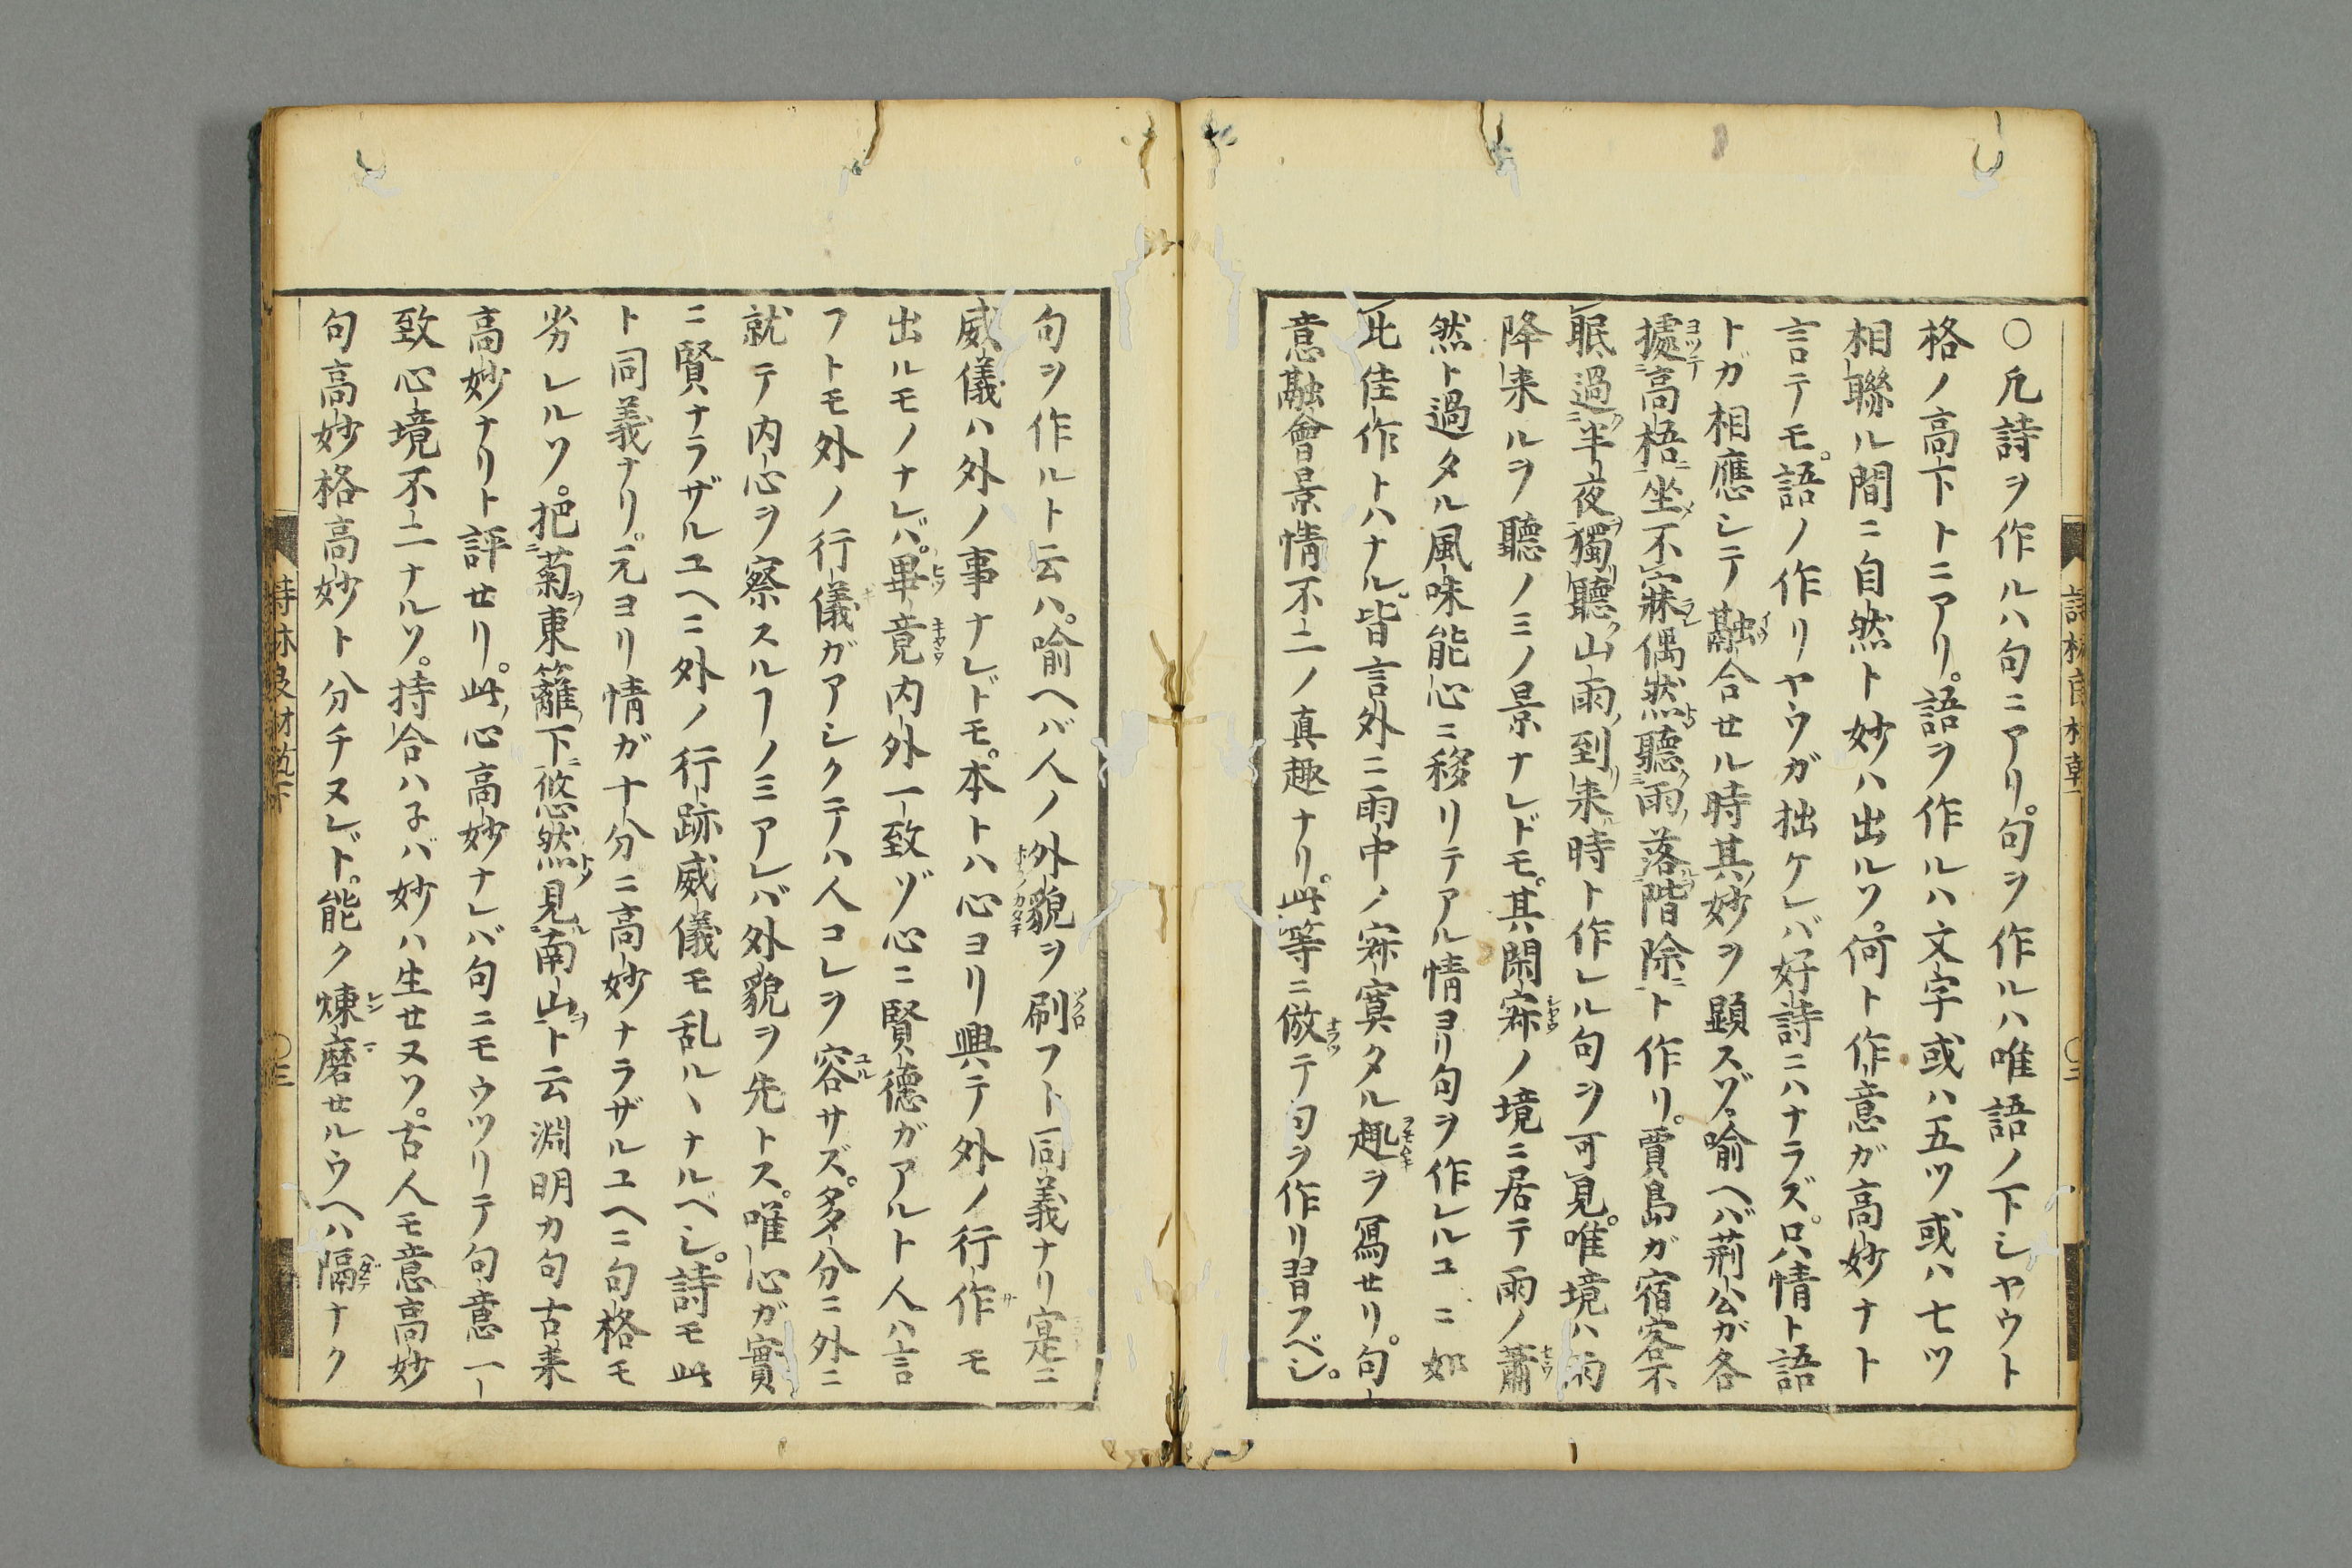 〇凢詩ヲ作ルハ句ニアリ。句ヲ作ルハ唯語ノ下シヤウト
格ノ高下トニアリ。語ヲ作ルハ文字或ハ五ツ或ハ七ツ
相聯ル間ニ自然ト妙ハ出ルソ。何ト作意ガ高妙ナト
言テモ。語ノ作リヤウガ拙ケレバ好詩ニハナラズ。只情ト語
トガ相應シテ融合セル時其妙ヲ顕スゾ。喩ヘバ荊公ガ各
據高梧坐不寐偶然聽雨落階除ト作リ。賈島ガ宿客不
眠過半夜獨聽山雨到来時ト作レル句ヲ可見。唯境ハ雨
降来ルヲ聽ノミノ景ナレドモ。其閑寂ノ境ニ居テ雨ノ蕭
然ト過タル風味能心ニ移リテアル情ヨリ句ヲ作レルユニ如
此佳作トハナル。皆言外ニ雨中ノ寂寞タル趣ヲ冩セリ。句ト
意融會景情不二ノ真趣ナリ。此等ニ倣テ句ヲ作リ習フベシ。
句ヲ作ルト云ハ。喩ヘバ人ノ外貌ヲ刷フト同義ナリ寔ニ
威儀ハ外ノ事ナレドモ。本トハ心ヨリ興テ外ノ行作モ
出ルモノナレバ。畢竟内外一致ゾ心ニ賢德ガアルト人ハ言
フトモ外ノ行儀ガアシクテハ人コレヲ容サズ。多分ニ外ニ
就テ内心ヲ察スルヿノミアレバ外貌ヲ先トス。唯心ガ實
ニ賢ナラザルユヘニ外ノ行跡威儀モ乱ルヽナルベシ。詩モ此
ト同義ナリ。元ヨリ情ガ十分ニ高妙ナラザルユヘニ句格モ
劣レルソ。把菊東籬下悠然見南山ト云淵明カ句古来
高妙ナリト評セリ。此心高妙ナレバ句ニモウツリテ句意一
致心境不二ナルソ。持合ハ子バ妙ハ生セヌソ。古人モ意高妙
句高妙格高妙ト分チヌレド。能ク煉磨セルウヘハ隔ナク